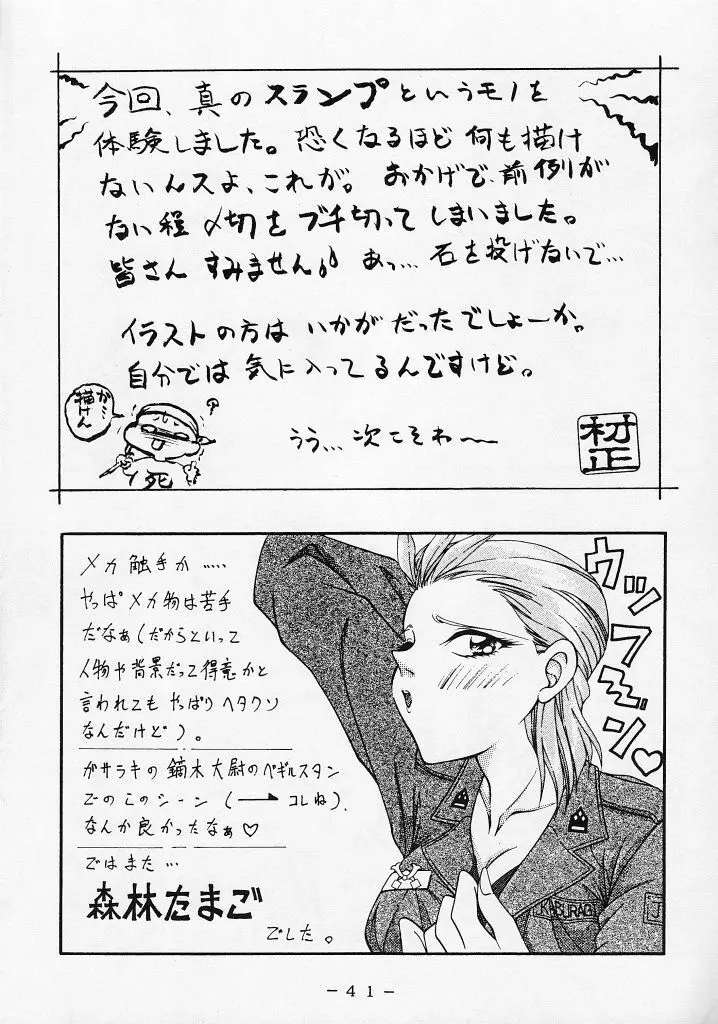 今回、真のスランプというモノを
体験しました。恐くなるほど何も描け
ないんスよ、これが。おかげで、前例が
ない程〆切をブチ切ってしまいました。
皆さんすみません♪ あっ…石を投げないで…
イラストの方はいかがだったでしょーか。
自分では気に入ってるんですけど。
うう…次こそわ〜
が…
描けん
死
村正
メカ触手か……
やっぱメカ物は苦手
だなぁ(だからといって
人物や背景だって得意かと
言われてもやっぱりヘタクソ
なんだけど)。
ガサラキの鏑木大尉のベギルスタン
でのこのシーン(→コレね)、
なんか良かったなぁ♡
ではまた…
森林たまご
でした。
ウッフ〜ン♡
KABURAGI
J
- 41 -